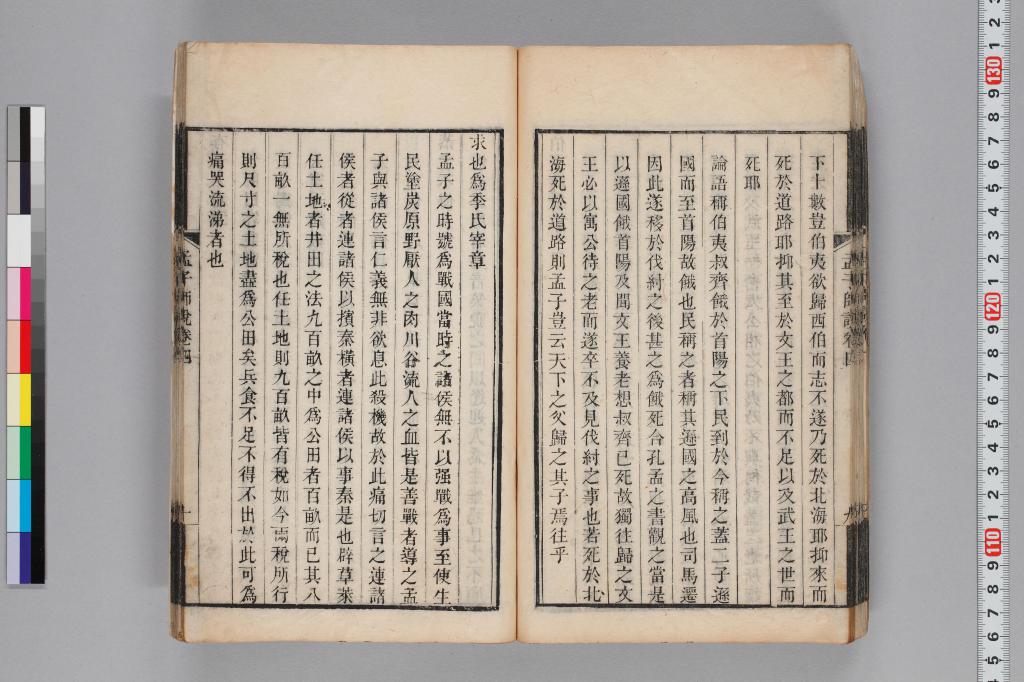 下士數豈伯夷欲歸西伯而志不遂乃死於北海耶抑來而
死於道路耶抑其至於文王之都而不足以及武王之世而
死耶
論語稱伯夷叔齊餓於首陽之下民到於今稱之蓋二子遜
國而至首陽故餓也民稱之者稱其遜國之高風也司馬遷
因此遂移於伐紂之後甚之為餓死合孔孟之書觀之當是
以遜國餓首陽及聞文王養老想叔齊已死故獨往歸之文
王必以寓公待之老而遂卒不及見伐紂之事也若死於北
海死於道路則孟子豈云天下之父歸之其子焉往乎
求也為季氏宰章
孟子之時號為戰國當時之諸侯無不以强戰為事至使生
民塗炭原野厭人之肉川谷流人之血皆是善戰者導之孟
子與諸侯言仁義無非欲息此殺機故於此痛切言之連諸
侯者從者連諸侯以擯秦橫者連諸侯以事秦是也辟草萊
任土地者井田之法九百畝之中為公田者百畝而已其八
百畝一無所稅也任土地則九百畝皆有稅如今兩稅所行
則尺寸之土地盡為公田矣兵食不足不得不出於此可為
痛哭流涕者也
孟子師說卷四